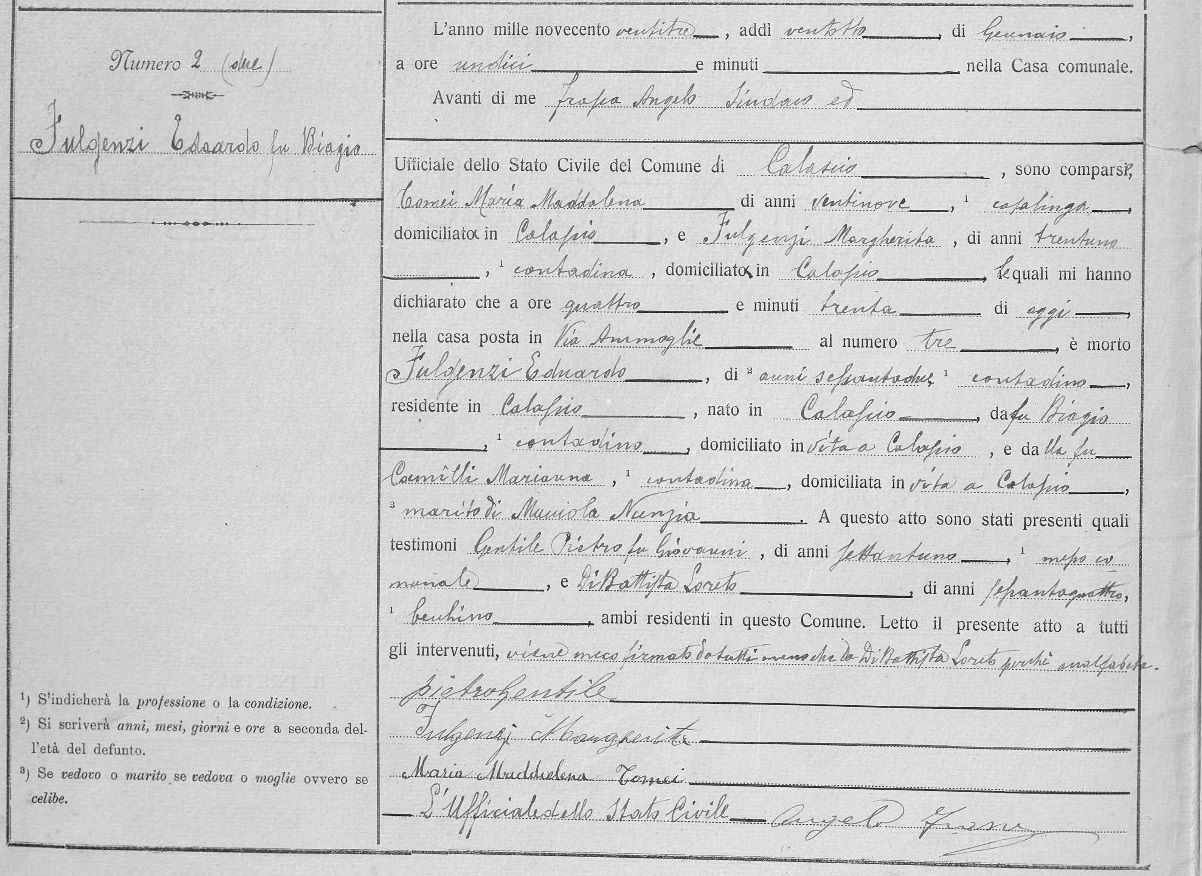 Numero 2 (due)
Fulgenzi Edoardo fu Biagio
L'anno mille novecento ventitre, addì ventotto, di Gennaio,
a ore undici e minuti nella Casa comunale.
Avanti di me Angelo Sindaco ed
Ufficiale dello Stato Civile del Comune di Calascio, sono comparsi,
Tomei Maria Maddalena di anni ventinove, ¹ casalinga,
domiciliata in Calascio, e Fulgenzi Margherita, di anni trentuno
, ¹ contadina, domiciliata in Calascio, le quali mi hanno
dichiarato che a ore quattro e minuti trenta di oggi,
nella casa posta in Via al numero tre, è morto
Fulgenzi Eduardo, di ² anni settantadue, ¹ contadino,
residente in Calascio, nato in Calascio, da fu Biagio
, ¹ contadino, domiciliato in vita a Calascio, e dalla fu
Camilli Marianna, ¹ contadina, domiciliata in vita a Calascio,
³ marito di Nunzia. A questo atto sono stati presenti quali
testimoni Gentile Pietro fu Giovanni, di anni settantuno, ¹ messo co
munale, e DiBattista Loreto di anni sessantaquattro,
¹ ambi residenti in questo Comune. Letto il presente atto a tutti
gli intervenuti, viene meco firmato da tutti meno che da DiBattista Loreto perchè analfabeta.
pietro Gentile
Fulgenzi Margherita
Maria Maddalena Tomei
L'Ufficiale dello Stato Civile Angelo
¹) S'indicherà la professione o la condizione.
²) Si scriverà anni, mesi, giorni e ore a seconda del-
l'età del defunto.
³) Se vedovo o marito se vedova o moglie ovvero se
celibe.